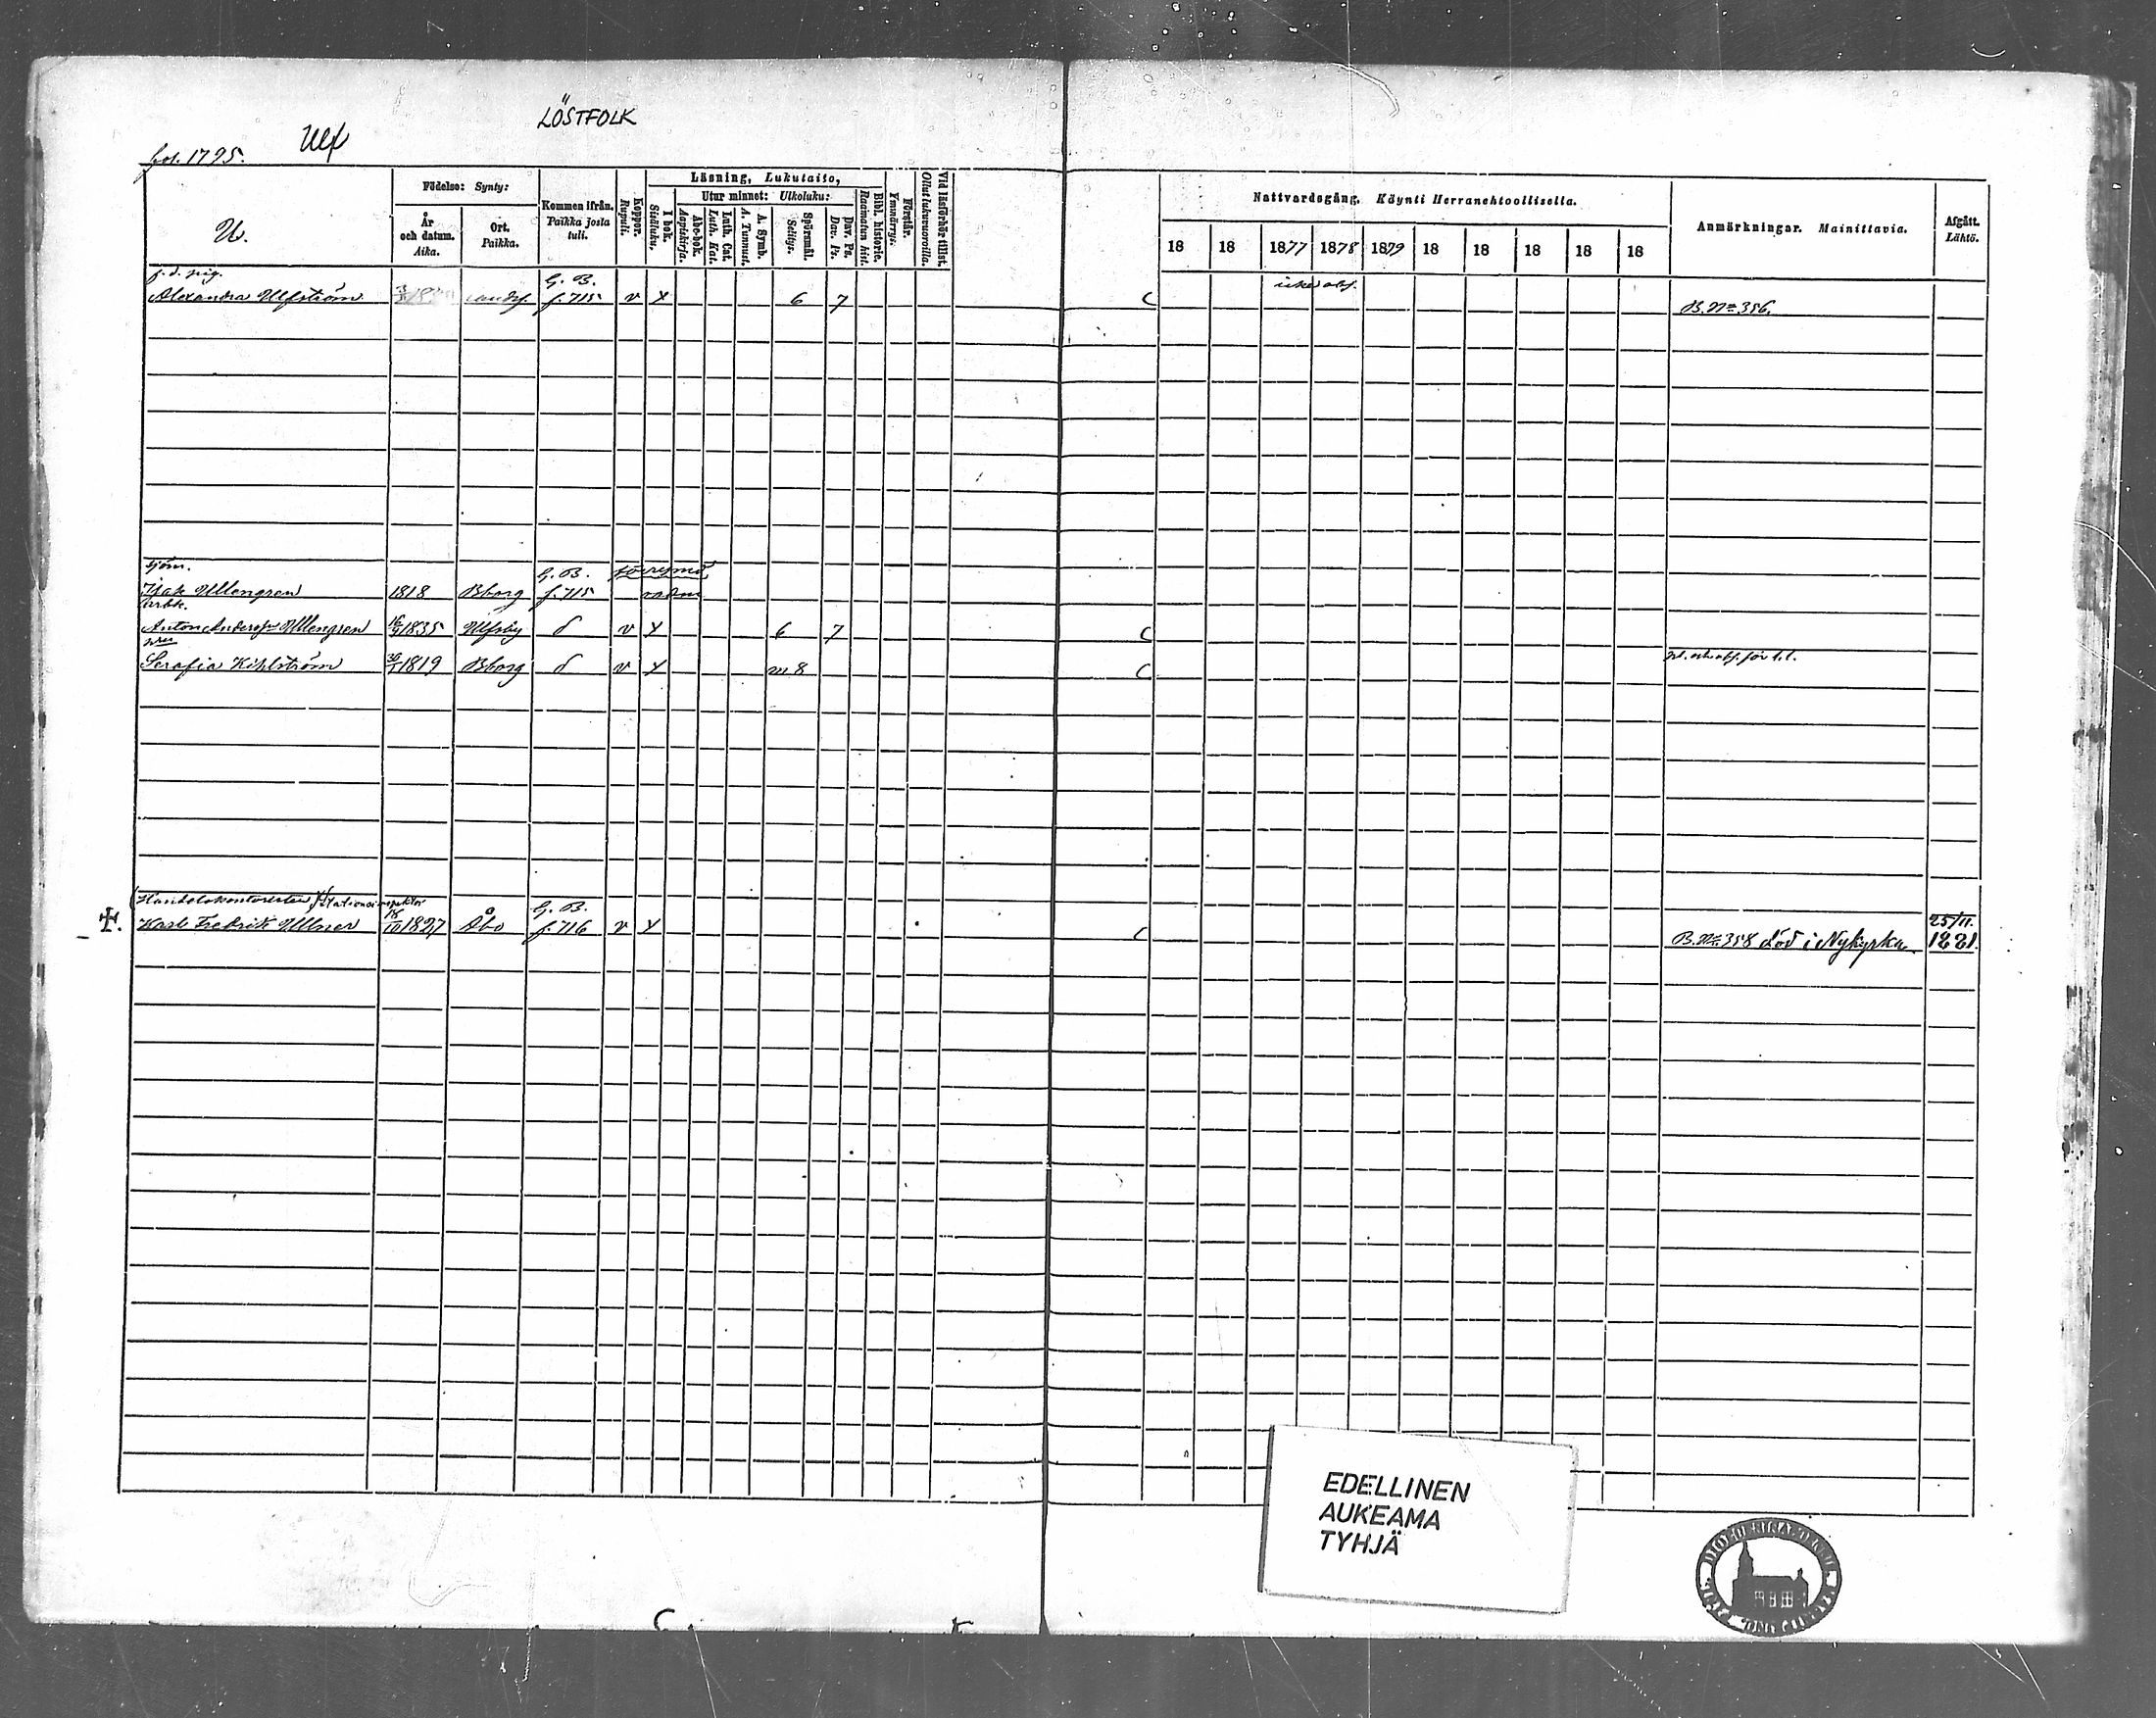 LÖSTFOLK
Ulf
fol. 1795.
U.
Födelse: Synty:
År och datum. Aika.
Ort. Paikka.
Kommen ifrån. Paikka josta tuli.
Koppor. Rupuli.
Läsning, Lukutaito,
I bok. Sisäluku.
Utur minnet: Ulkoluku:
Abc-bok. Aapiskirja.
Luth. Cat. Luth. Kat.
A. Symb. A. Tunnust.
Spörsmål. Selitys.
Dav. Ps. Dav. Ps.
Bibl. historie. Raamatun hist.
Förstår. Ymmärrys.
Vid läsförhör tillst. Ollut lukuvuoroilla.
Nattvardsgång. Käynti Herranehtoollisella.
18 18 1877 1878 1879 18 18 18 18 18
Anmärkningar. Mainittavia.
Afgått. Lähtö.
f. d. pig. G. B.
Alexandra Ulfström f. 715 v x 6 7 C B. No 356.
sjöm. G. B.
Isak Ullengren 1818 Bborg f. 715
arbk.
Anton Andersson Ullengren 16/9 1835 Ulfsby d v x 6 7 C
Serafia Kihlström 30/1 1819 Bborg d v x m 8 C
Handelskontoristen Stationsinspektor G. B.
Karl Fredrik Ullner 18/10 1827 Åbo f. 716 v x C B. No 358 död i Nykyrka. 25/11. 1881.
EDELLINEN
AUKEAMA
TYHJÄ